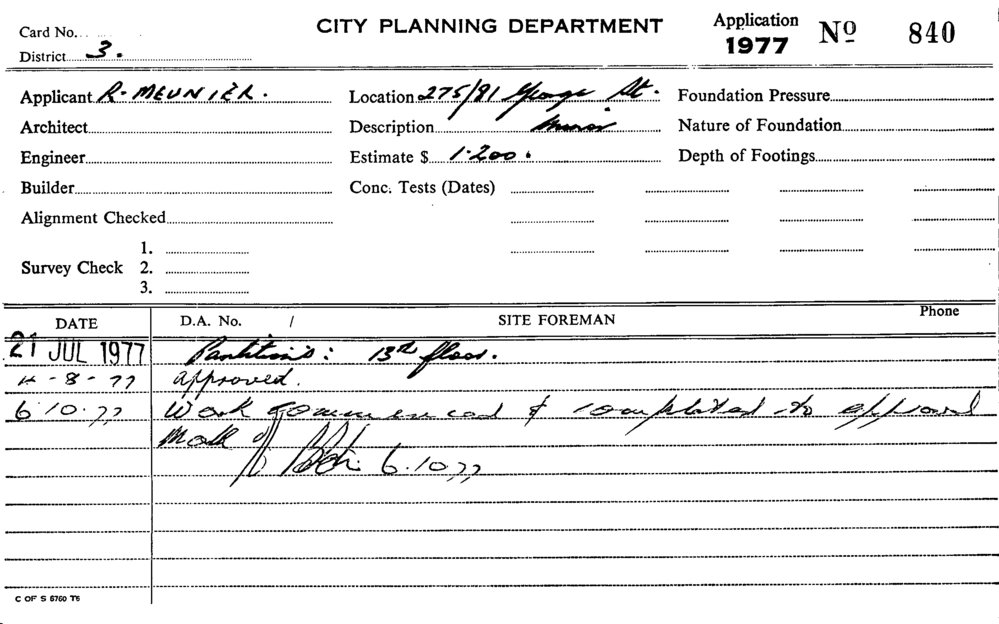 Card No. CITY PLANNING DEPARTMENT Application 1977 Nº 840
District 3.
Applicant R. MEUNIER. Location 275/81 George St. Foundation Pressure
Architect Description Minor Nature of Foundation
Engineer Estimate $ 1.200. Depth of Footings
Builder Conc. Tests (Dates)
Alignment Checked
1.
Survey Check 2.
3.
DATE D.A. No. / SITE FOREMAN Phone
21 JUL 1977 Partitions: 13th floor.
4-8-77 approved.
6.10.77 Work commenced & completed to approval
6.10.77
C OF S 6760 T6